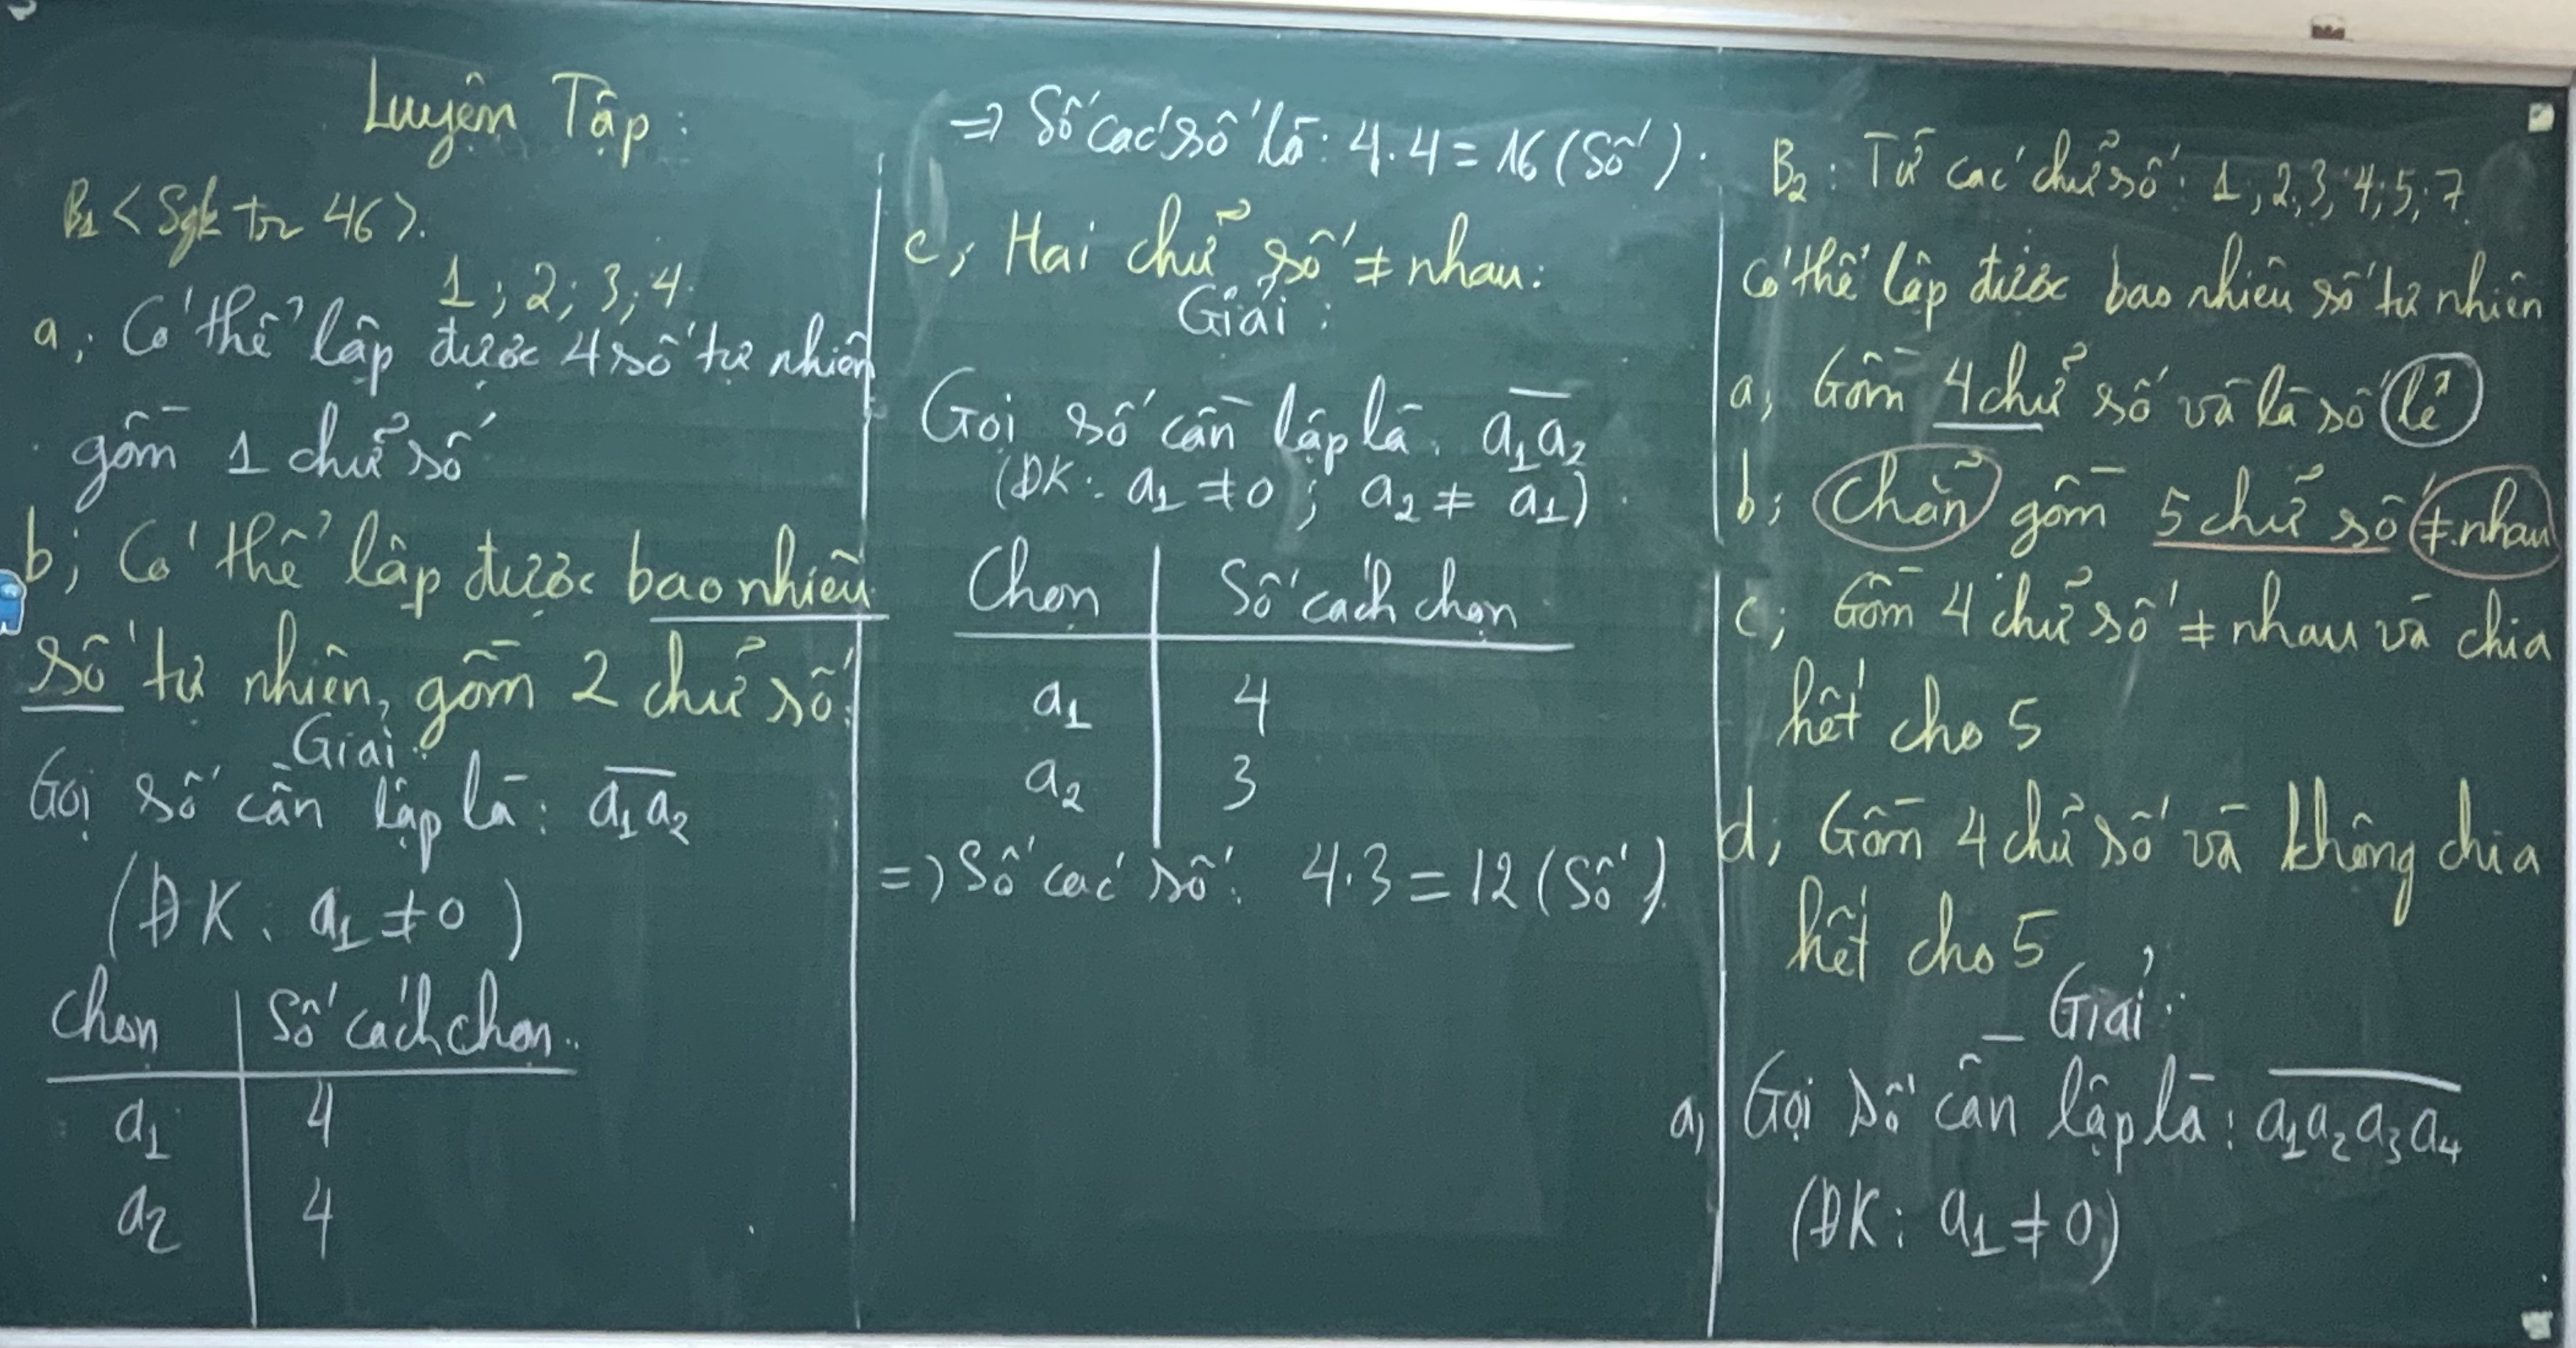 Luyện Tập:
B1 <Sgk tr 46>.
1; 2; 3; 4.
a, Có thể lập được 4 số tự nhiên
gồm 1 chữ số
b; Có thể lập được bao nhiêu
số tự nhiên, gồm 2 chữ số.
Giải:
Gọi số cần lập là: a1a2
(ĐK: a1 ≠ 0)
Chọn | Số cách chọn
a1 | 4
a2 | 4
=> Số các số là: 4.4 = 16 (Số).
c, Hai chữ số ≠ nhau.
Giải:
Gọi số cần lập là: a1a2
(ĐK: a1 ≠ 0; a2 ≠ a1)
Chọn | Số cách chọn
a1 | 4
a2 | 3
=> Số các số: 4.3 = 12 (Số).
B2: Từ các chữ số: 1; 2; 3; 4; 5; 7.
Có thể lập được bao nhiêu số tự nhiên
a, Gồm 4 chữ số và là số lẻ
b; Chẵn gồm 5 chữ số ≠ nhau
c; Gồm 4 chữ số ≠ nhau và chia
hết cho 5
d, Gồm 4 chữ số và không chia
hết cho 5
Giải:
a, Gọi số cần lập là: a1a2a3a4
(ĐK: a1 ≠ 0)